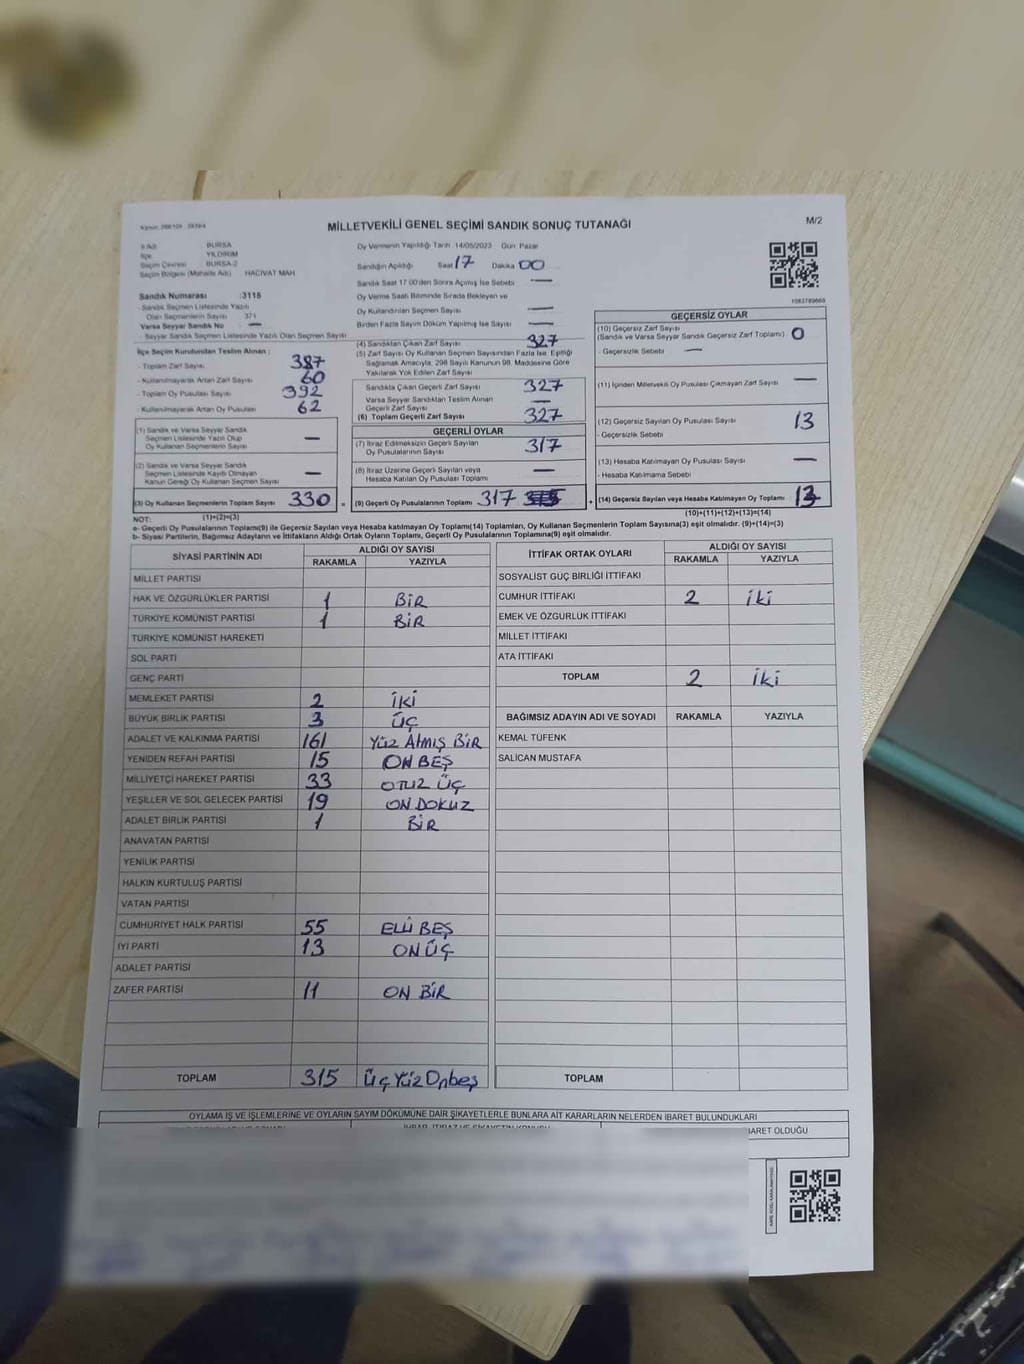 MİLLETVEKİLİ GENEL SEÇİMİ SANDIK SONUÇ TUTANAĞI
M/2
İl Adı : BURSA
İlçe : YILDIRIM
Seçim Çevresi : BURSA-2
Seçim Bölgesi (Mahalle Adı) : HACİVAT MAH.
Oy Vermenin Yapıldığı Tarih 14/05/2023 Gün: Pazar
Sandığın Açıldığı Saat 17 Dakika 00
Sandık Saat 17:00'den Sonra Açılmış İse Sebebi —
Oy Verme Saati Bitiminde Sırada Bekleyen ve
Oy Kullandırılan Seçmen Sayısı —
Birden Fazla Sayım Döküm Yapılmış İse Sayısı —
1083789666
Sandık Numarası :3118
- Sandık Seçmen Listesinde Yazılı
Olan Seçmenlerin Sayısı 371
Varsa Seyyar Sandık No —
- Seyyar Sandık Seçmen Listesinde Yazılı Olan Seçmen Sayısı
İlçe Seçim Kurulundan Teslim Alınan :
- Toplam Zarf Sayısı 387
- Kullanılmayarak Artan Zarf Sayısı 60
- Toplam Oy Pusulası Sayısı 392
- Kullanılmayarak Artan Oy Pusulası 62
(1) Sandık ve Varsa Seyyar Sandık
Seçmen Listesinde Yazılı Olup
Oy Kullanan Seçmenlerin Sayısı —
(2) Sandık ve Varsa Seyyar Sandık
Seçmen Listesinde Kayıtlı Olmayan
Kanun Gereği Oy Kullanan Seçmen Sayısı —
(3) Oy Kullanan Seçmenlerin Toplam Sayısı 330 =
(1)+(2)=(3)
(4) Sandıktan Çıkan Zarf Sayısı 327
(5) Zarf Sayısı Oy Kullanan Seçmen Sayısından Fazla İse, Eşitliği
Sağlamak Amacıyla, 298 Sayılı Kanunun 98. Maddesine Göre
Yakılarak Yok Edilen Zarf Sayısı
Sandıkta Çıkan Geçerli Zarf Sayısı 327
Varsa Seyyar Sandıktan Teslim Alınan
Geçerli Zarf Sayısı —
(6) Toplam Geçerli Zarf Sayısı 327
GEÇERLİ OYLAR
(7) İtiraz Edilmeksizin Geçerli Sayılan
Oy Pusulası Sayısı 317
(8) İtiraz Üzerine Geçerli Sayılan veya
Hesaba Katılan Oy Pusulası Toplamı —
(9) Geçerli Oy Pusulalarının Toplamı 317 +
GEÇERSİZ OYLAR
(10) Geçersiz Zarf Sayısı
(Sandık ve Varsa Seyyar Sandık Geçersiz Zarf Toplamı) 0
- Geçersizlik Sebebi —
(11) İçinden Milletvekili Oy Pusulası Çıkmayan Zarf Sayısı —
(12) Geçersiz Sayılan Oy Pusulası Sayısı 13
- Geçersizlik Sebebi
(13) Hesaba Katılmayan Oy Pusulası Sayısı —
- Hesaba Katılmama Sebebi
(14) Geçersiz Sayılan veya Hesaba Katılmayan Oy Toplamı 13
(10)+(11)+(12)+(13)=(14)
NOT:
a- Geçerli Oy Pusulalarının Toplamı(9) ile Geçersiz Sayılan veya Hesaba katılmayan Oy Toplamı(14) Toplamları, Oy Kullanan Seçmenlerin Toplam Sayısına(3) eşit olmalıdır. (9)+(14)=(3)
b- Siyasi Partilerin, Bağımsız Adayların ve İttifakların Aldığı Ortak Oyların Toplamı, Geçerli Oy Pusulalarının Toplamına(9) eşit olmalıdır.
SİYASİ PARTİNİN ADI ALDIĞI OY SAYISI
RAKAMLA YAZIYLA
MİLLET PARTİSİ
HAK VE ÖZGÜRLÜKLER PARTİSİ 1 BİR
TÜRKİYE KOMÜNİST PARTİSİ 1 BİR
TÜRKİYE KOMÜNİST HAREKETİ
SOL PARTİ
GENÇ PARTİ
MEMLEKET PARTİSİ 2 İKİ
BÜYÜK BİRLİK PARTİSİ 3 ÜÇ
ADALET VE KALKINMA PARTİSİ 161 YÜZ ATMIŞ BİR
YENİDEN REFAH PARTİSİ 15 ON BEŞ
MİLLİYETÇİ HAREKET PARTİSİ 33 OTUZ ÜÇ
YEŞİLLER VE SOL GELECEK PARTİSİ 19 ON DOKUZ
ADALET BİRLİK PARTİSİ 1 BİR
ANAVATAN PARTİSİ
YENİLİK PARTİSİ
HALKIN KURTULUŞ PARTİSİ
VATAN PARTİSİ
CUMHURİYET HALK PARTİSİ 55 ELLİ BEŞ
İYİ PARTİ 13 ON ÜÇ
ADALET PARTİSİ
ZAFER PARTİSİ 11 ON BİR
TOPLAM 315 Üç Yüz Onbeş
İTTİFAK ORTAK OYLARI ALDIĞI OY SAYISI
RAKAMLA YAZIYLA
SOSYALİST GÜÇ BİRLİĞİ İTTİFAKI
CUMHUR İTTİFAKI 2 İki
EMEK VE ÖZGÜRLÜK İTTİFAKI
MİLLET İTTİFAKI
ATA İTTİFAKI
TOPLAM 2 İki
BAĞIMSIZ ADAYIN ADI VE SOYADI RAKAMLA YAZIYLA
KEMAL TÜFENK
SALİCAN MUSTAFA
TOPLAM
OYLAMA İŞ VE İŞLEMLERİNE VE OYLARIN SAYIM DÖKÜMÜNE DAİR ŞİKAYETLERLE BUNLARA AİT KARARLARIN NELERDEN İBARET BULUNDUKLARI
BARET OLDUĞU